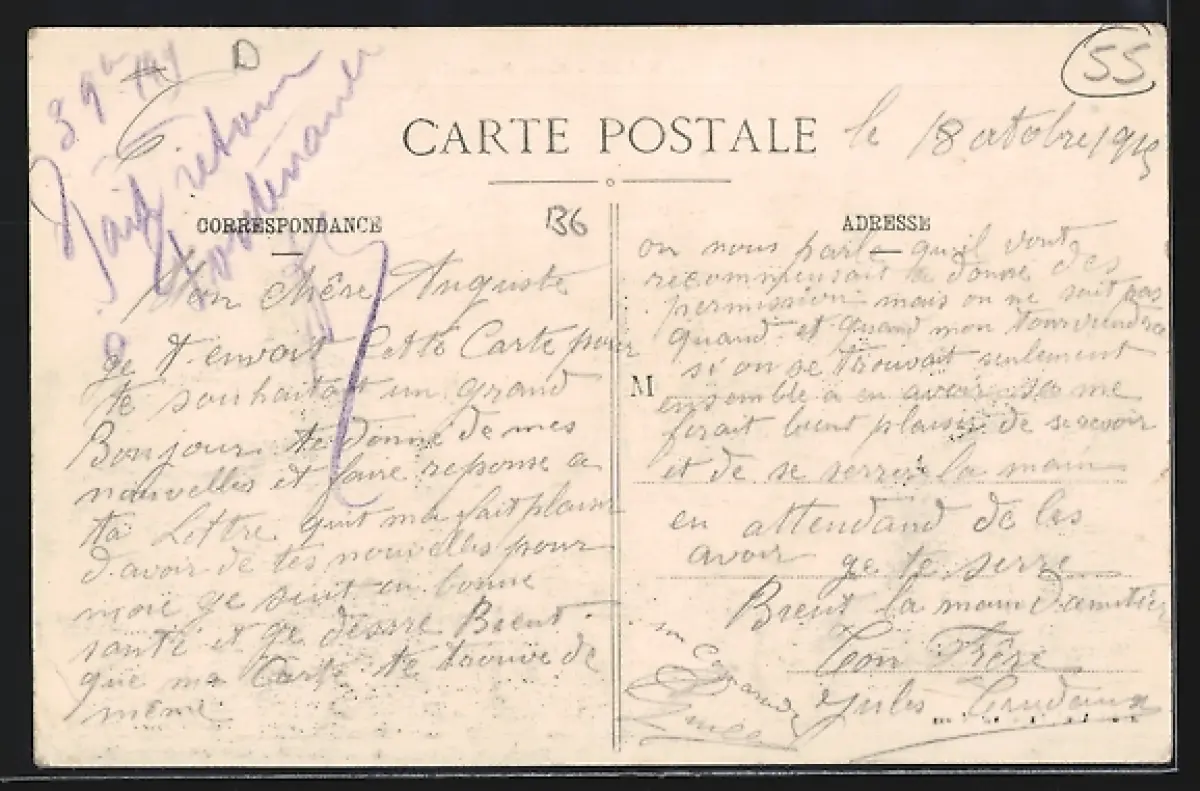 D
55
CARTE POSTALE
le 18 octobre 1915
CORRESPONDANCE
136
ADRESSE
M
Mon chére Auguste
ge t'envoit Cette Carte pour
te souhaitait un grand
Bonjour te donné de mes
nouvelles et faire reponse a
ta Lettre quit ma fait plaisir
d'avoir de tes nouvelles pour
moie ge suit en bonne
santé et ge désire Bient
que ma Carte te trouve de
même
on nous parle qu'il vont
recommensait a donné des
permission mais on ne sait pas
quand et quand mon tour viendra
si on se trouvait seulement
ensemble a en avoir sa me
ferait bient plaisir de se revoir
et de se serrer la main
en attendand de les
avoir ge te serre
Bient la main d'amitiez
Ton Frére
Jules